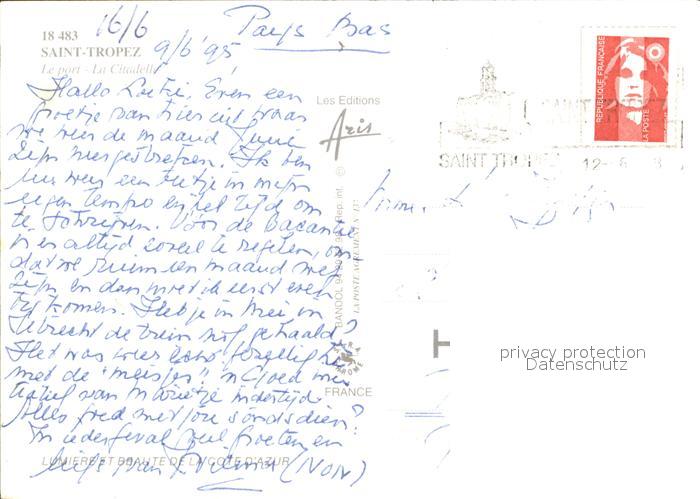 18 483
SAINT-TROPEZ
Le port - La Citadelle
16/6
Pays Bas
9/6 '95
Hallo Loekie. Even een
groetje van hier uit waar
we weer de maand Juni
zijn neergestreken. Ik ben
nu weer een tijdje in mijn
eigen tempo en heb tijd om
te schrijven. Vóór de vacantie
is er altijd zoveel te regelen, om
dat we ruim een maand weg
zijn en dan moet ik eerst even
bijkomen. Heb je in mei in
Utrecht de trein nog gehaald?
Het was weer echt gezellig hè
met de "meisjes" 'n Goed ini
tiatief van indertijd
Alles goed met jou sindsdien?
In ieder geval veel groeten en
liefs van (NON)
LUMIERE ET BEAUTE DE LA COTE D'AZUR
Les Editions
Aris
BANDOL
Rep. int. ©
LA POSTE AGREMENT N°
FRANCE
REPUBLIQUE FRANÇAISE
LA POSTE
SAINT TROPEZ
SAINT TROPEZ
12-6
privacy protection
Datenschutz